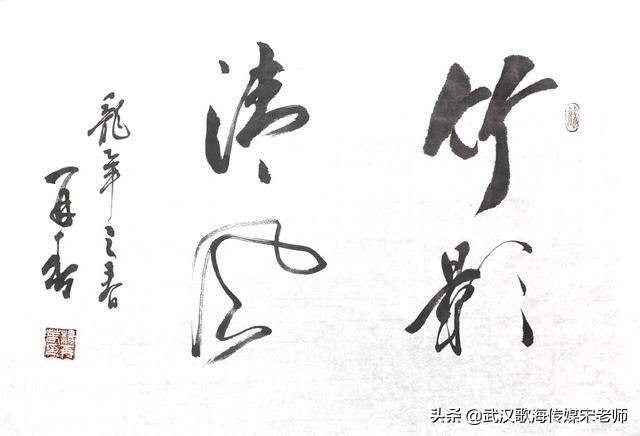 竹影
清风
龍年之春
再春
头条 @武汉歌海传媒宋老师